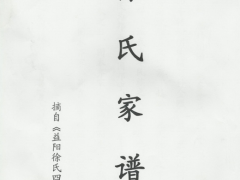 氏家谱
摘自《益阳徐氏四